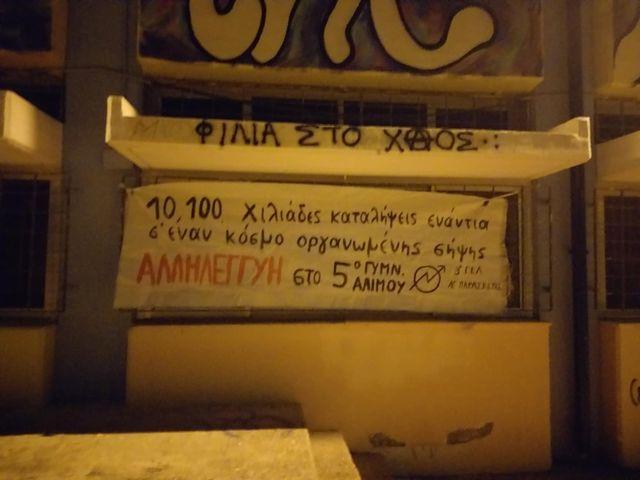 ΦΙΛΙΑ ΣΤΟ ΧΑΟΣ.:
10, 100, χιλιάδες καταλήψεις ενάντια
σ'έναν κόσμο οργανωμένης σήψης
ΑΛΛΗΛΕΓΓΥΗ στο 5ο ΓΥΜΝ. ΑΛΙΜΟΥ
3 ΓΕΛ
ΑΓ. ΠΑΡΑΣΚΕΥΗΣ